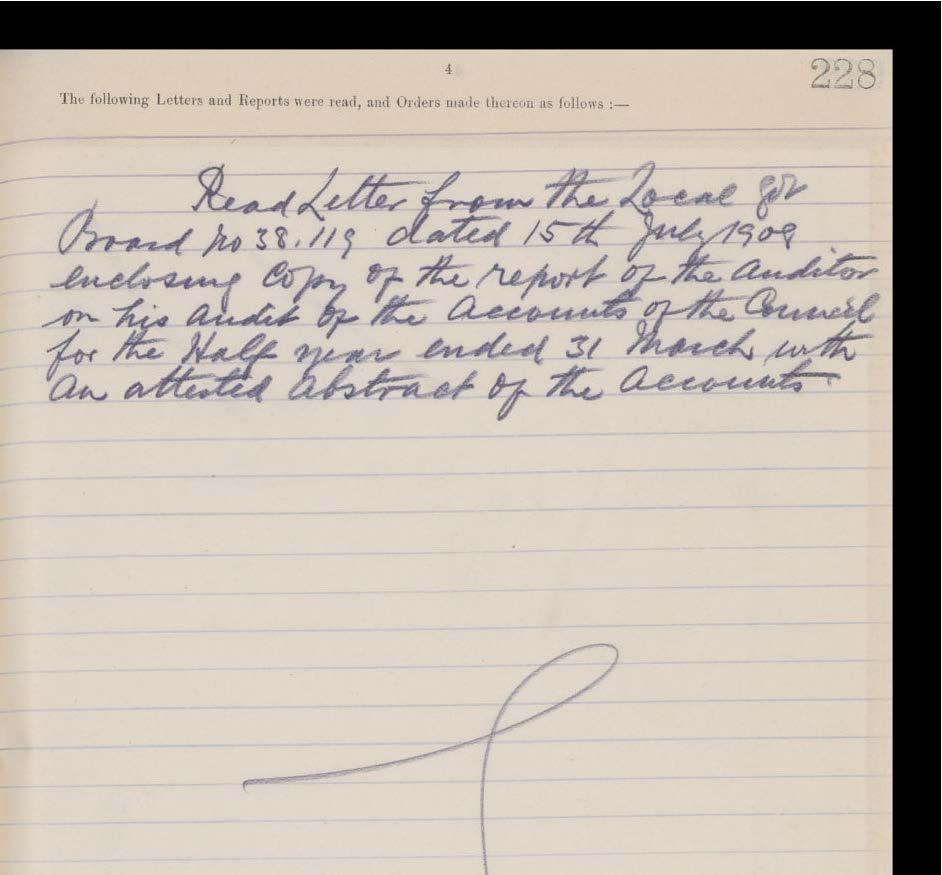 4
228
The following Letters and Reports were read, and Orders made thereon as follows :—
Read Letter from the Local Gov
Board No 38.119 dated 15th July 1909
enclosing Copy of the report of the Auditor
on his audit of the Accounts of the Council
for the Half year ended 31 March with
an attested Abstract of the Accounts.